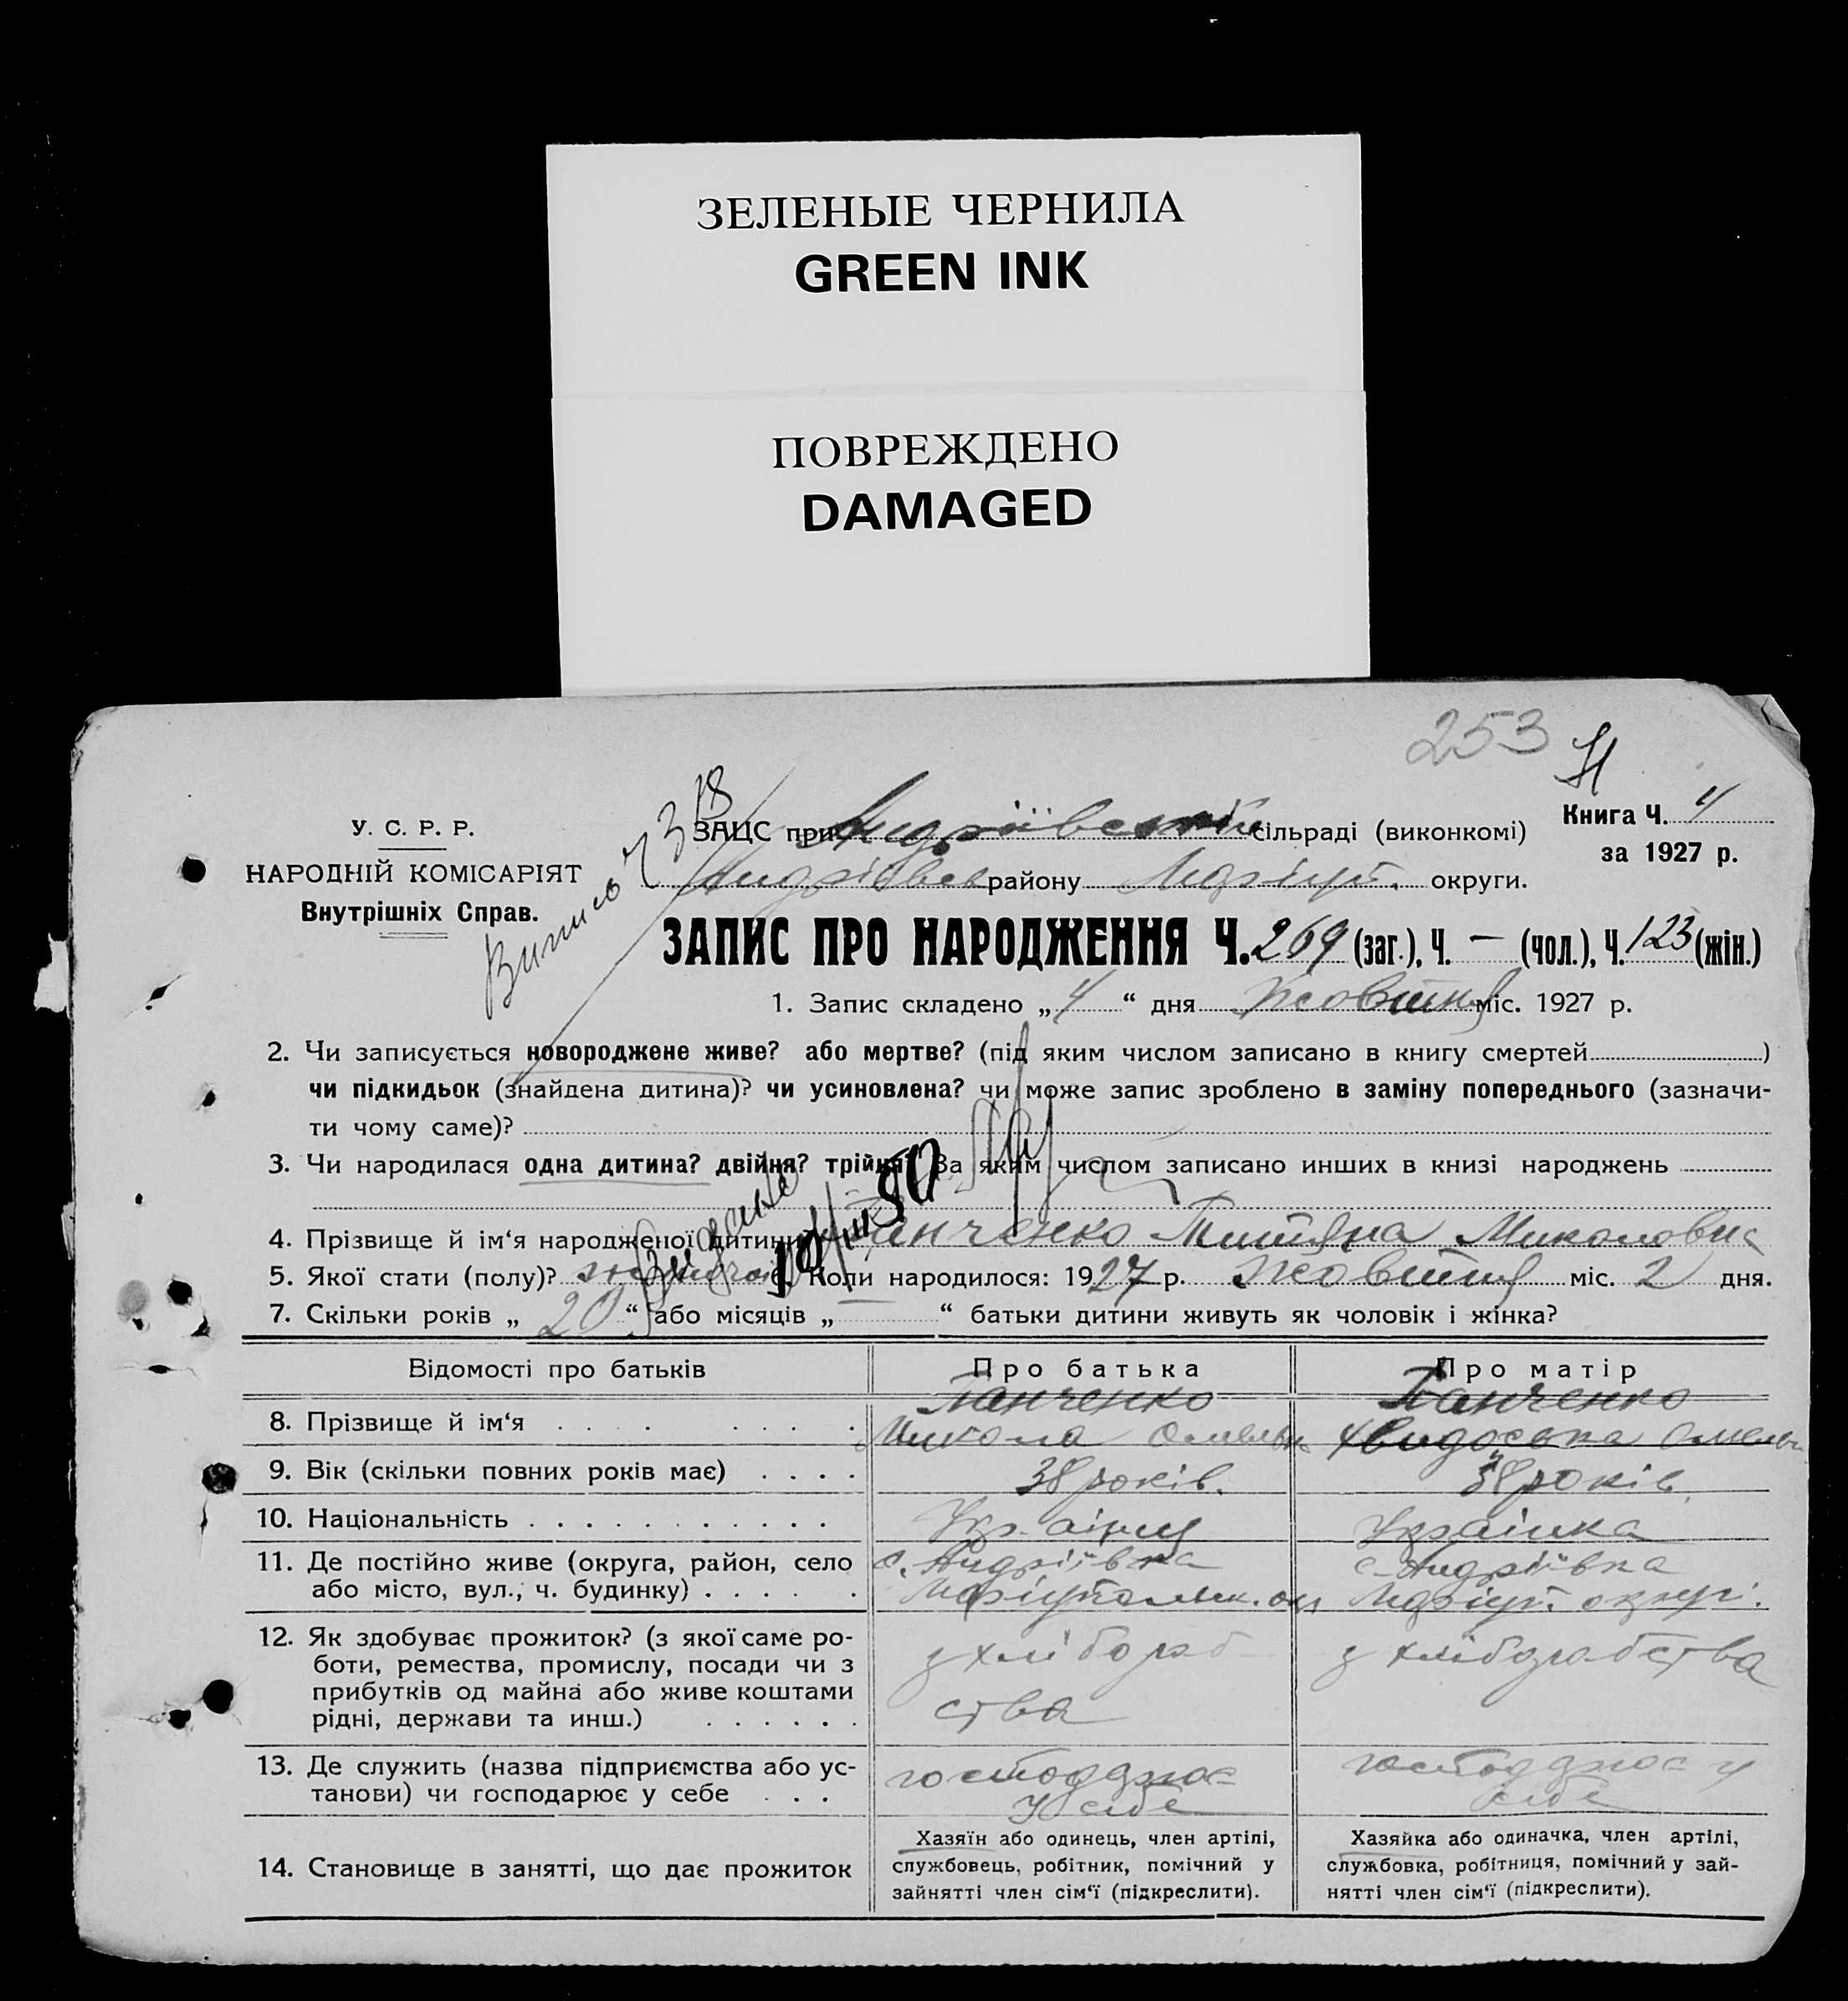 ЗЕЛЕНЫЕ ЧЕРНИЛА
GREEN INK
ПОВРЕЖДЕНО
DAMAGED
253
У. С. Р. Р.
НАРОДНІЙ КОМІСАРІЯТ
Внутрішніх Справ.
Книга Ч. 4
за 1927 р.
ЗАЦС при Андріївській сільраді (виконкомі)
Андріівськ району Маріуп. округи.
ЗАПИС ПРО НАРОДЖЕННЯ Ч. 269 (заг.), Ч. — (чол.), Ч. 123 (жін.)
1. Запис складено „ 4 “ дня Жовтня міс. 1927 р.
2. Чи записується новороджене живе? або мертве? (під яким числом записано в книгу смертей )
чи підкидьок (знайдена дитина)? чи усиновлена? чи може запис зроблено в заміну попереднього (зазначи-
ти чому саме)?
3. Чи народилася одна дитина? двійня? трійня? За яким числом записано инших в книзі народжень
4. Прізвище й ім‘я народженої дитини Панченко Титяна Миколовна
5. Якої стати (полу)? жіночої 6. Коли народилося: 1927 р. Жовтня міс. 2 дня.
7. Скільки років „ 20 “ або місяців „ — “ батьки дитини живуть як чоловік і жінка?
Відомості про батьків Про батька Про матір
8. Прізвище й ім‘я Панченко Микола Омельк Панченко Хвидоська Омель
9. Вік (скільки повних років має) 38 років. 38 років.
10. Національність Українц Українка
11. Де постійно живе (округа, район, село
або місто, вул., ч. будинку) с. Андріївка Маріупольськ. окр с. Андріївка Маріуп. округ.
12. Як здобуває прожиток? (з якої саме ро-
боти, ремества, промислу, посади чи з
прибутків од майна або живе коштами
рідні, держави та инш.) з хліборобства з хліборобства
13. Де служить (назва підприємства або ус-
танови) чи господарює у себе господарює у себе господарює у себе
14. Становище в занятті, що дає прожиток
Хазяїн або одинець, член артілі,
службовець, робітник, помічний у
зайнятті член сім‘ї (підкреслити).
Хазяйка або одиначка, член артілі,
службовка, робітниця, помічний у зай-
нятті член сім‘ї (підкреслити).